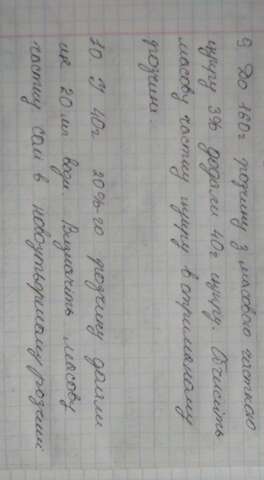 9 До 160г розчину з масовою часткою
цукру 3% додали 40г цукру. Обчисліть
масову частку цукру в отриманому
розчині.
10 У 40г 20%-го розчину долили
ще 20 мл води. Визначіть масову
частку солі в новоутвореному розчині